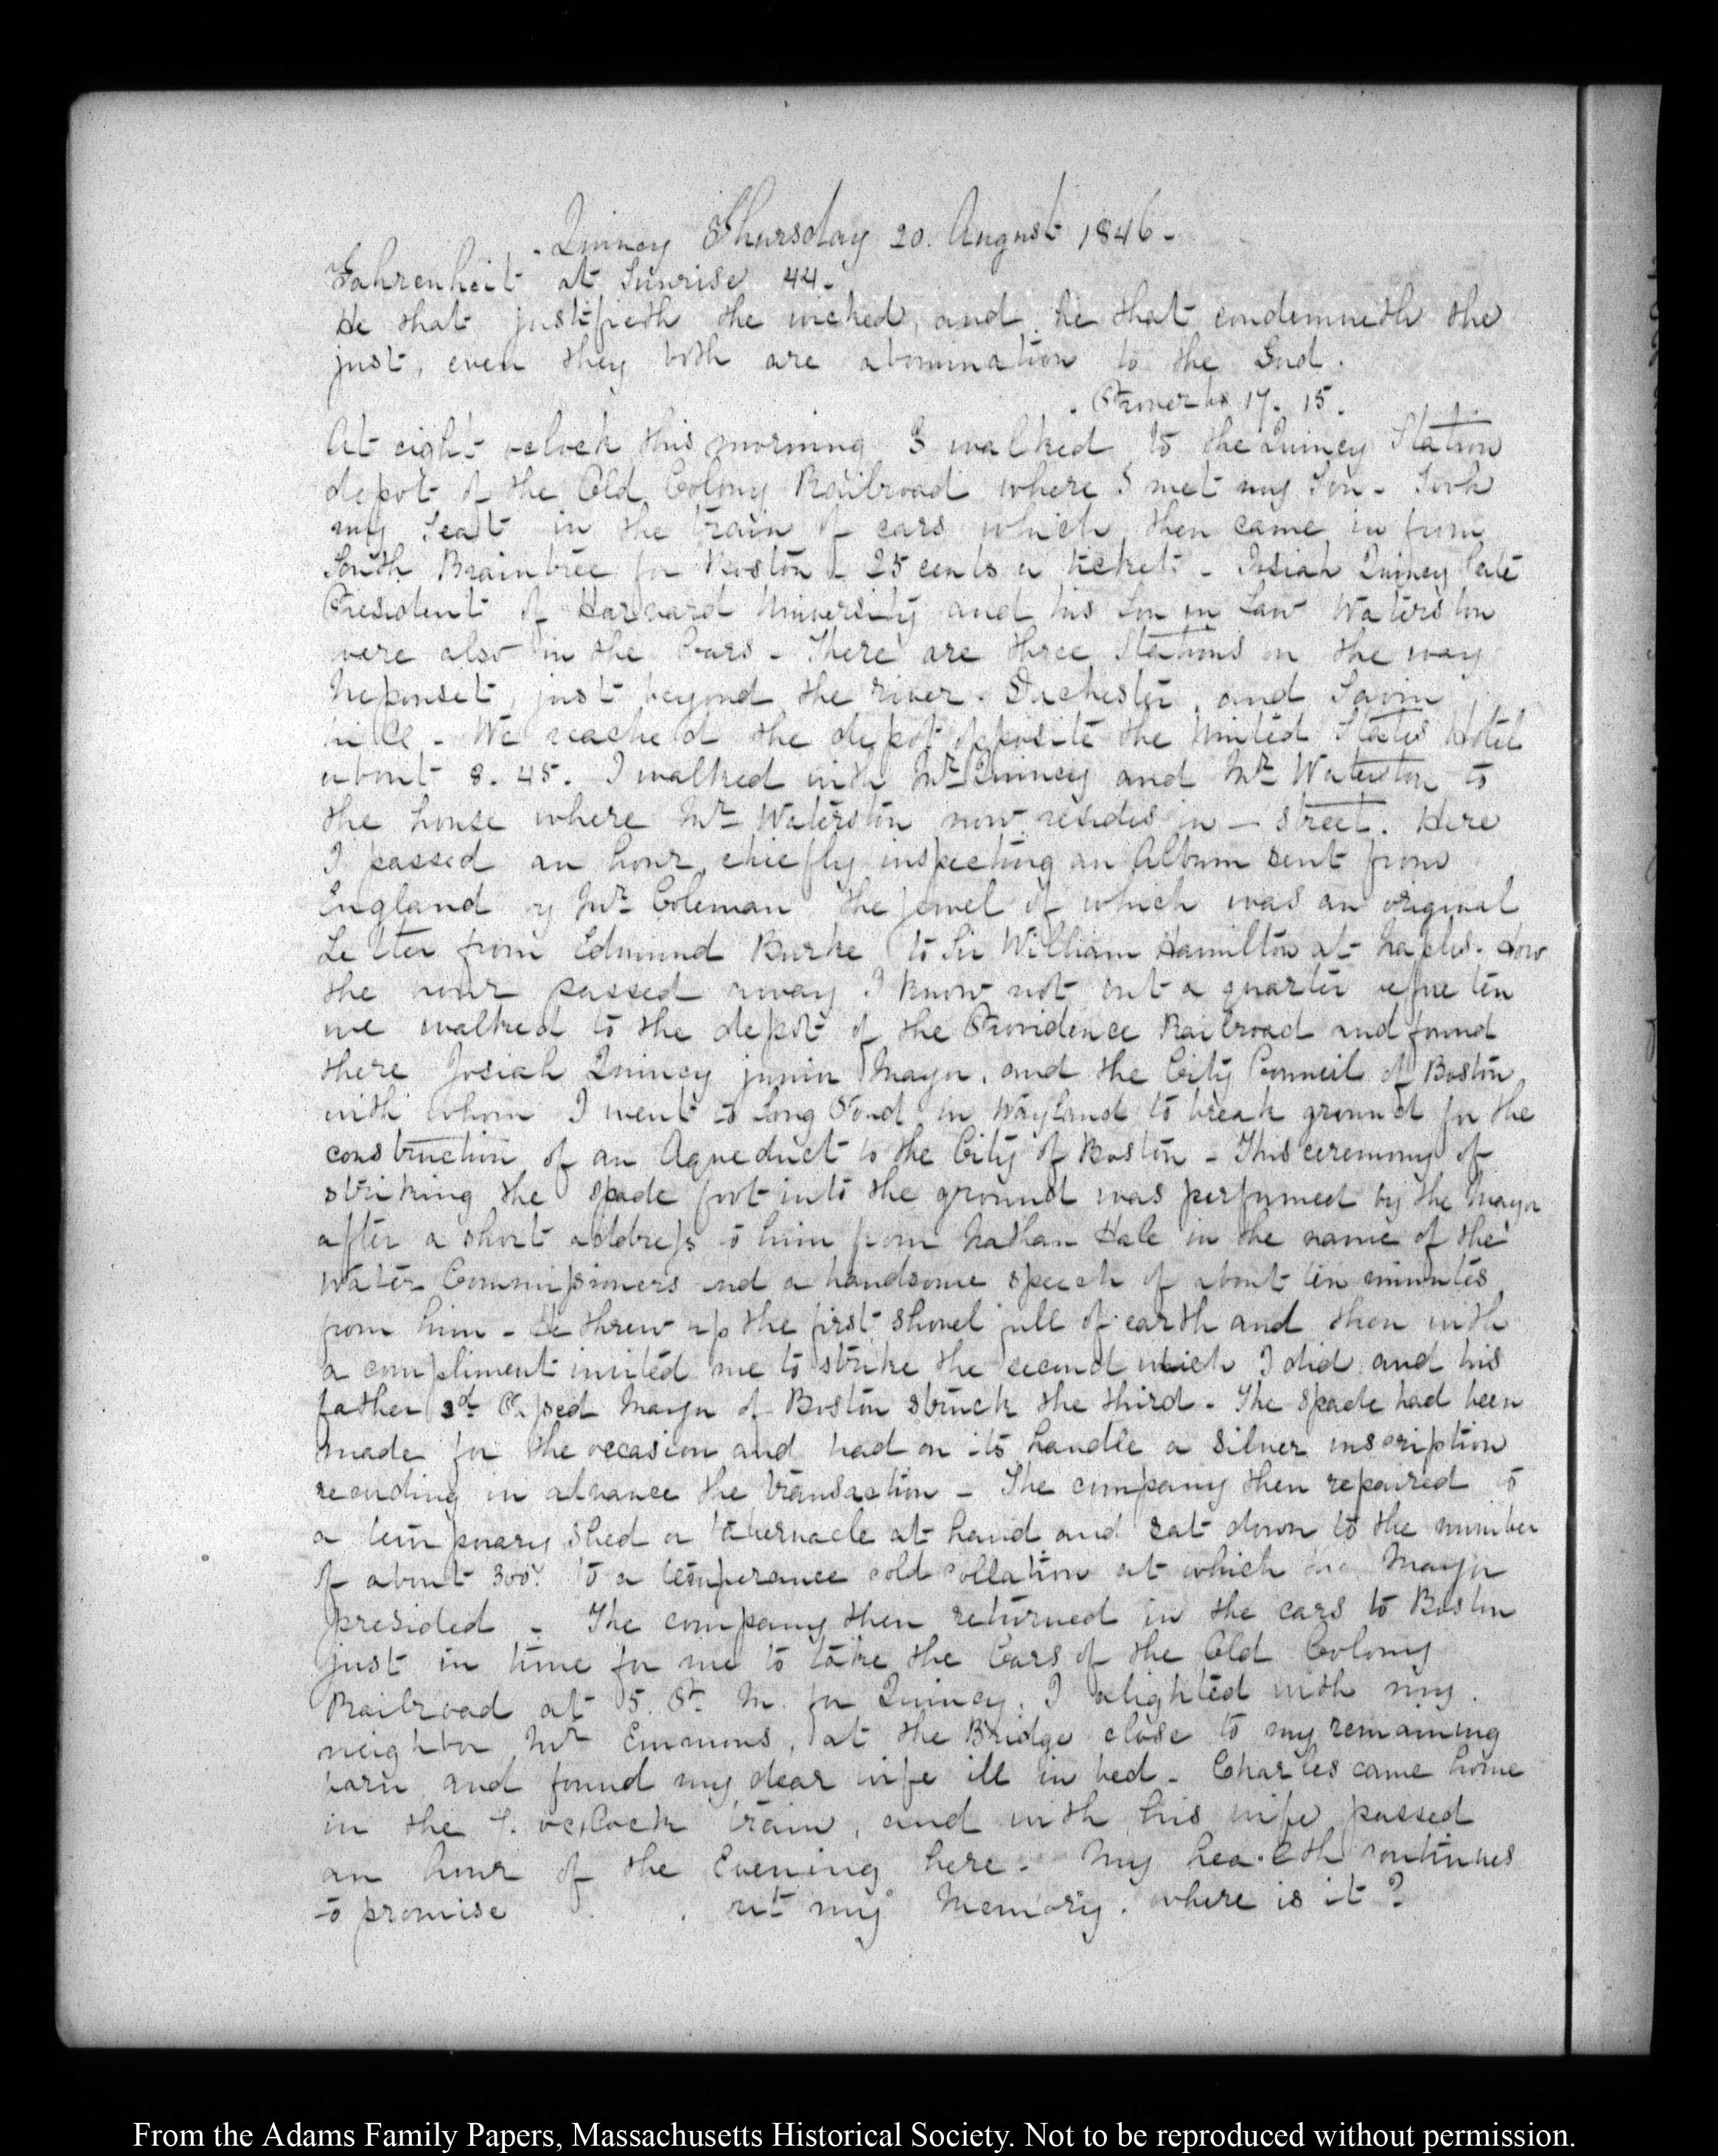 Quincy Thursday 20. August 1846.
Fahrenheit at Sunrise 44.
He that justifieth the wicked, and he that condemneth the
just, even they both are abomination to the Lord.
Proverbs 17. 15.
At eight oclock this morning I walked to the Quincy Station
depot of the Old Colony Railroad where I met my Son - Took
my Seat in the train of cars which then came in from
South Braintree for Boston - 25 cents a ticket - Josiah Quincy late
President of Harvard University and his Son in Law Waterston
were also in the Cars - There are three Stations on the way
Neponset, just beyond the river - Dorchester, and Savin
hill - We reached the depot opposite the United States Hotel
about 8. 45. I walked with Mr Quincy and Mr Waterston to
the house where Mr Waterston now resides in — street. Here
I passed an hour, chiefly inspecting an Album sent from
England by Mr Coleman the jewel of which was an original
Letter from Edmund Burke to Sir William Hamilton at Naples. How
the hour passed away I know not but a quarter before ten
we walked to the depot of the Providence Railroad and found
there Josiah Quincy junior Mayor, and the City Council of Boston
with whom I went to Long Pond in Wayland to break ground for the
construction of an Aqueduct to the City of Boston - This ceremony of
striking the spade foot into the ground was performed by the Mayor
after a short address to him from Nathan Hale in the name of the
Water Commissioners and a handsome speech of about ten minutes
from him - He threw up the first shovel full of earth and then with
a compliment invited me to strike the second which I did and his
father 2d Mayor of Boston struck the third - The spade had been
made for the occasion and had on its handle a silver inscription
recording in advance the transaction - The company then repaired to
a temporary shed or tabernacle at hand and sat down to the number
of about 300. to a temperance cold collation at which the Mayor
presided - The company then returned in the cars to Boston
just in time for me to take the Cars of the Old Colony
Railroad at 5. P. M. for Quincy. I alighted with my
neighbor Mr Emmons, at the Bridge close to my remaining
barn and found my dear wife ill in bed - Charles came home
in the 7. oclock train, and with his wife passed
an hour of the Evening here - My health continues
to promise but my Memory. where is it?
From the Adams Family Papers, Massachusetts Historical Society. Not to be reproduced without permission.